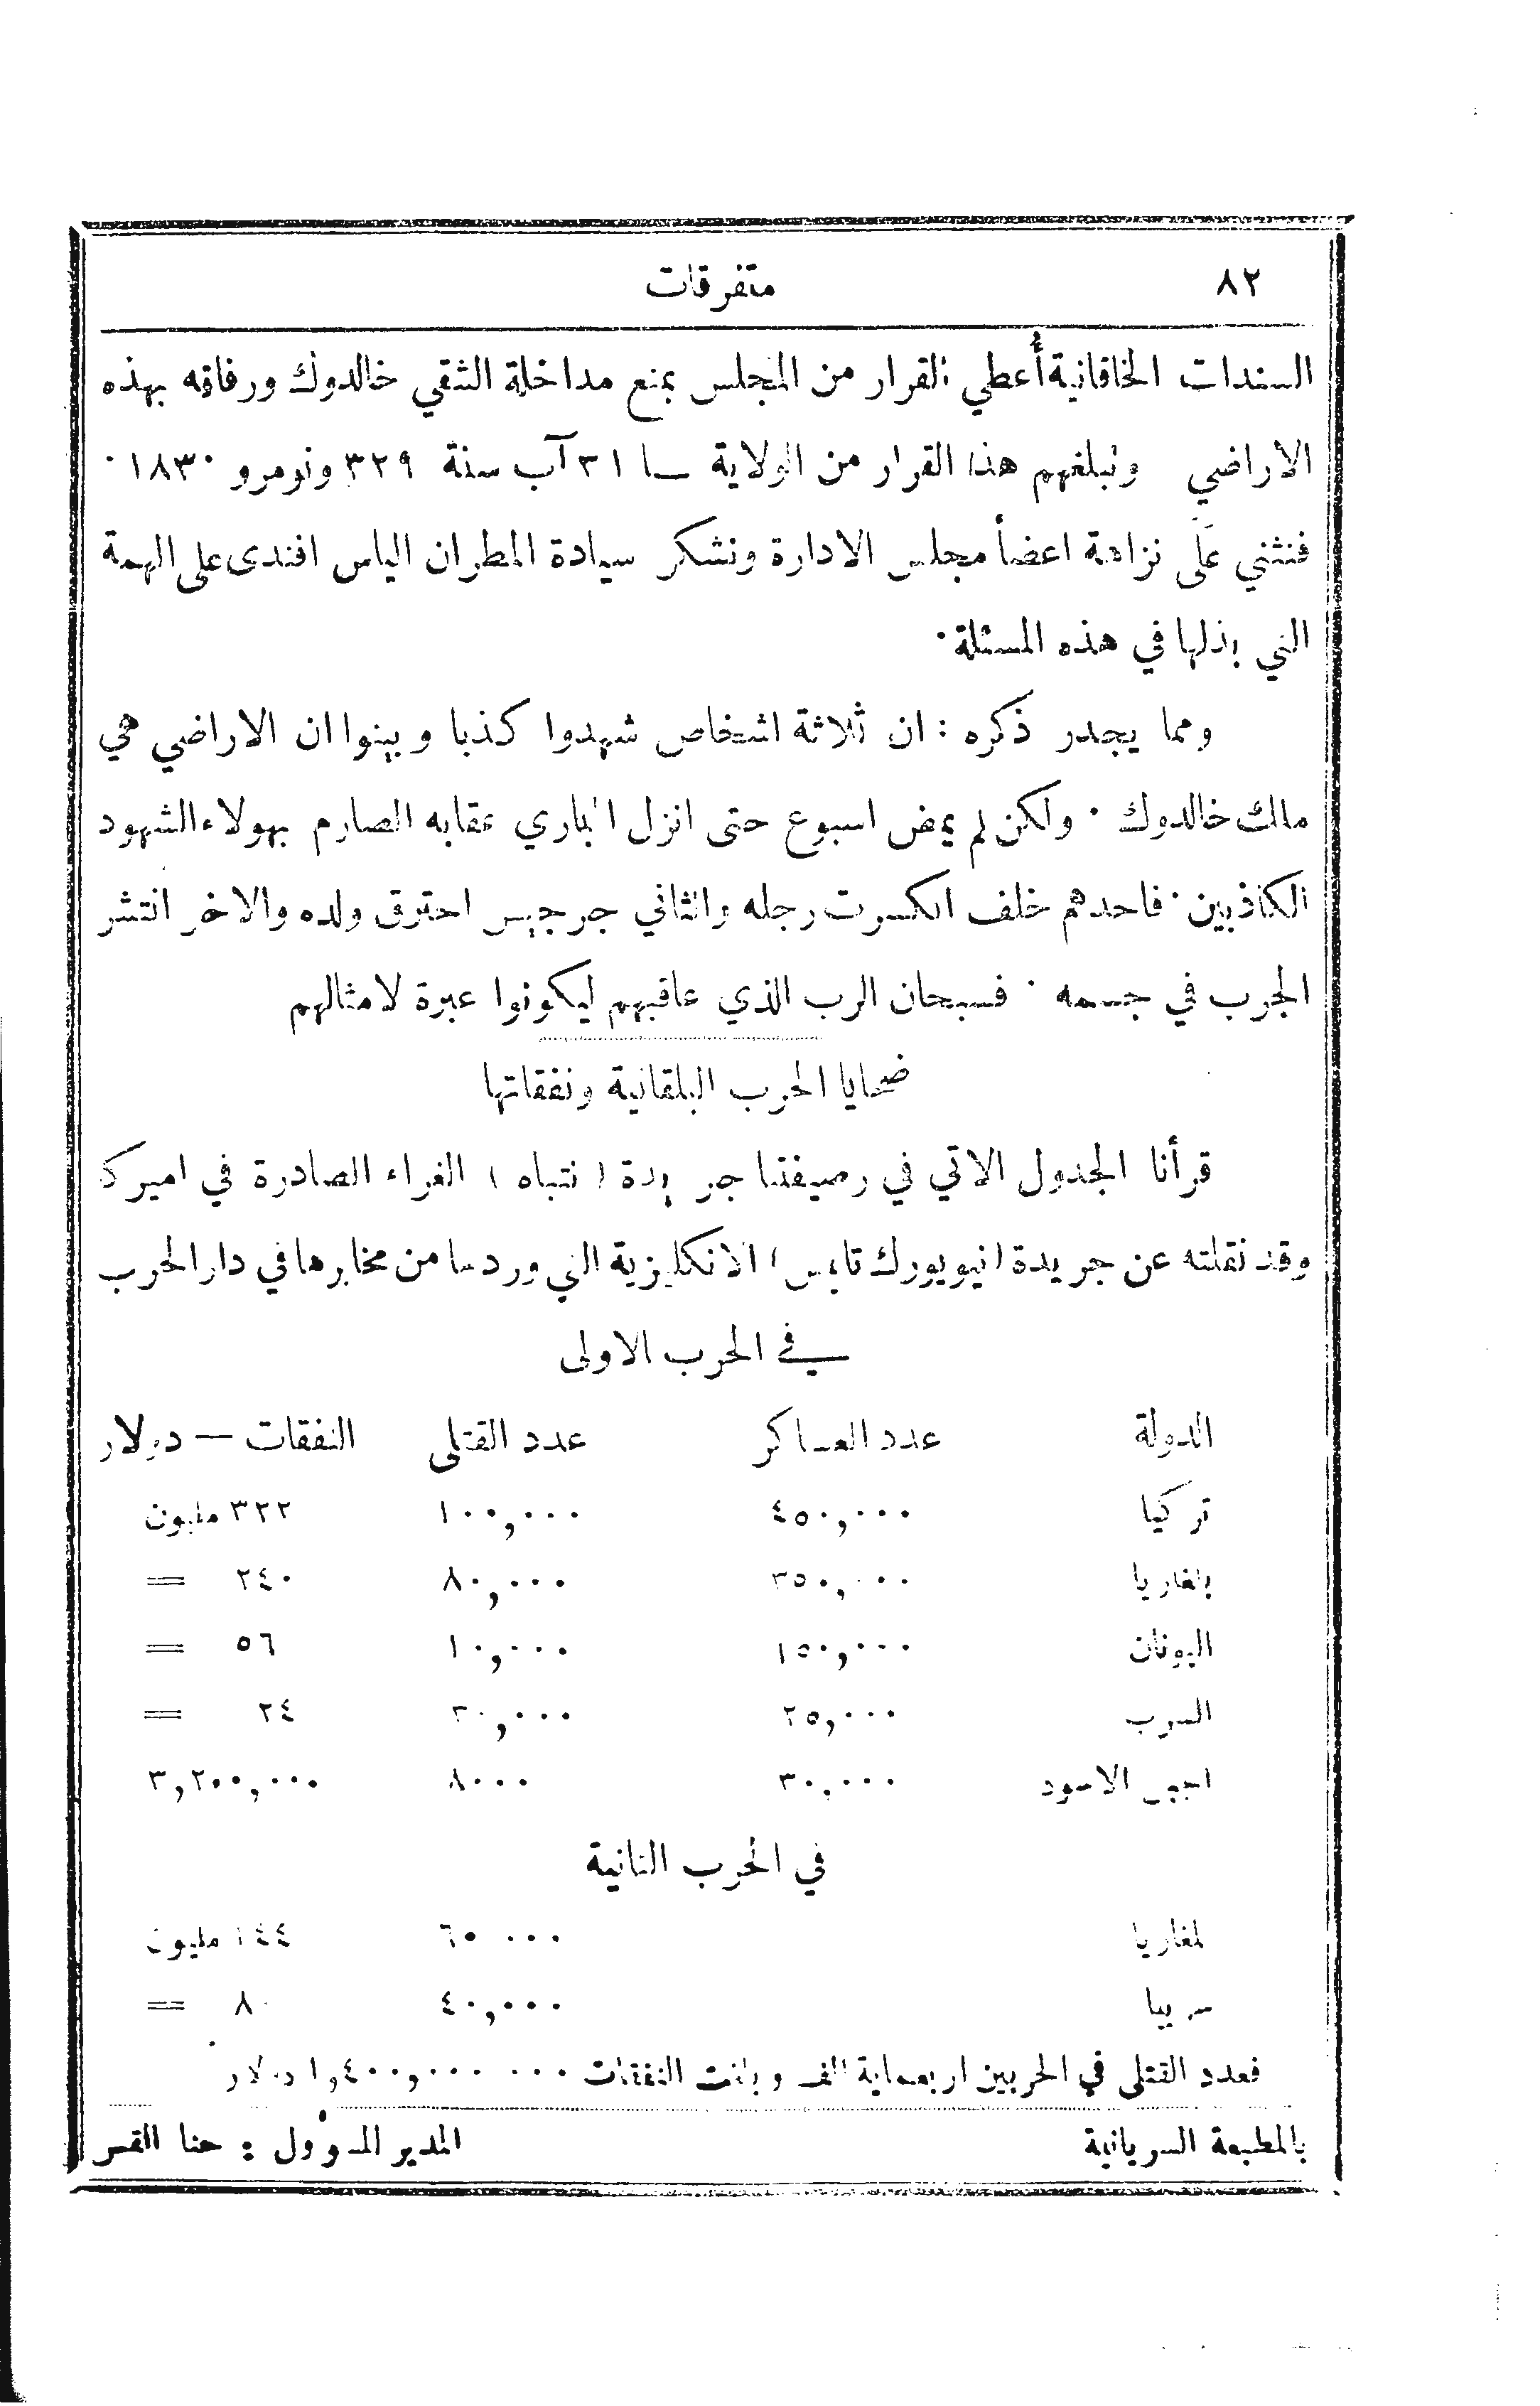 ٨٢ متفرقات
السندات الخاقانية أُعطي القرار من المجلس بمنع مداخلة الشقي خالدوك ورفاقه بهذه
الاراضي وتبلغهم هذا القرار من الولاية ٣١ آب سنة ٣٢٩ ونومرو ١٨٣٠ ·
فنثني عَلَى نزاهة اعضأ مجلس الادارة ونشكر سيادة المطران الياس افندى على الهمة
التي بذلها في هذه المسئلة ·
ومما يجدر ذكره : ان ثلاثة اشخاص شهدوا كذبا وبينوا ان الاراضي هي
ملك خالدوك · ولكن لم يمض اسبوع حتى انزل الباري عقابه الصارم بهولاء الشهود
الكاذبين · فاحدهم خلف انكسرت رجله والثاني جرجيس احترق ولده والاخر انتشر
الجرب في جسمه · فسبحان الرب الذي عاقبهم ليكونوا عبرة لامثالهم
ضحايا الحرب البلقانية ونفقاتها
قرأنا الجدول الاتي في رصيفتنا جريدة ( نتباه ) الغراء الصادرة في اميرك
وقد نقلته عن جريدة ( نيويورك تايمس ) الانكليزية التي وردها من مخابرها في دار الحرب
في الحرب الاولى
الدولة عدد العساكر عدد القتلى النفقات — دولار
تركيا ٤٥٠,٠٠٠ ١٠٠,٠٠٠ ٣٢٢ مليون
بلغاريا ٣٥٠,٠٠٠ ٨٠,٠٠٠ ٢٤٠ =
اليونان ١٥٠,٠٠٠ ١٠,٠٠٠ ٥٦ =
السرب ٢٥,٠٠٠ ٣٠,٠٠٠ ٢٤ =
الجبل الاسود ٣٠,٠٠٠ ٨٠٠٠ ٣,٢٠٠,٠٠٠
في الحرب الثانية
بلغاريا ٦٠ ٠٠٠ ١٤٤ مليون
سربيا ٤٠,٠٠٠ ٨٠ =
فعدد القتلى في الحربين اربعماية الف وبلغت النفقات ١,٤٠٠,٠٠٠ ٠٠٠ دولار
بالمطبعة السريانية المدير المسوٴول : حنا القس